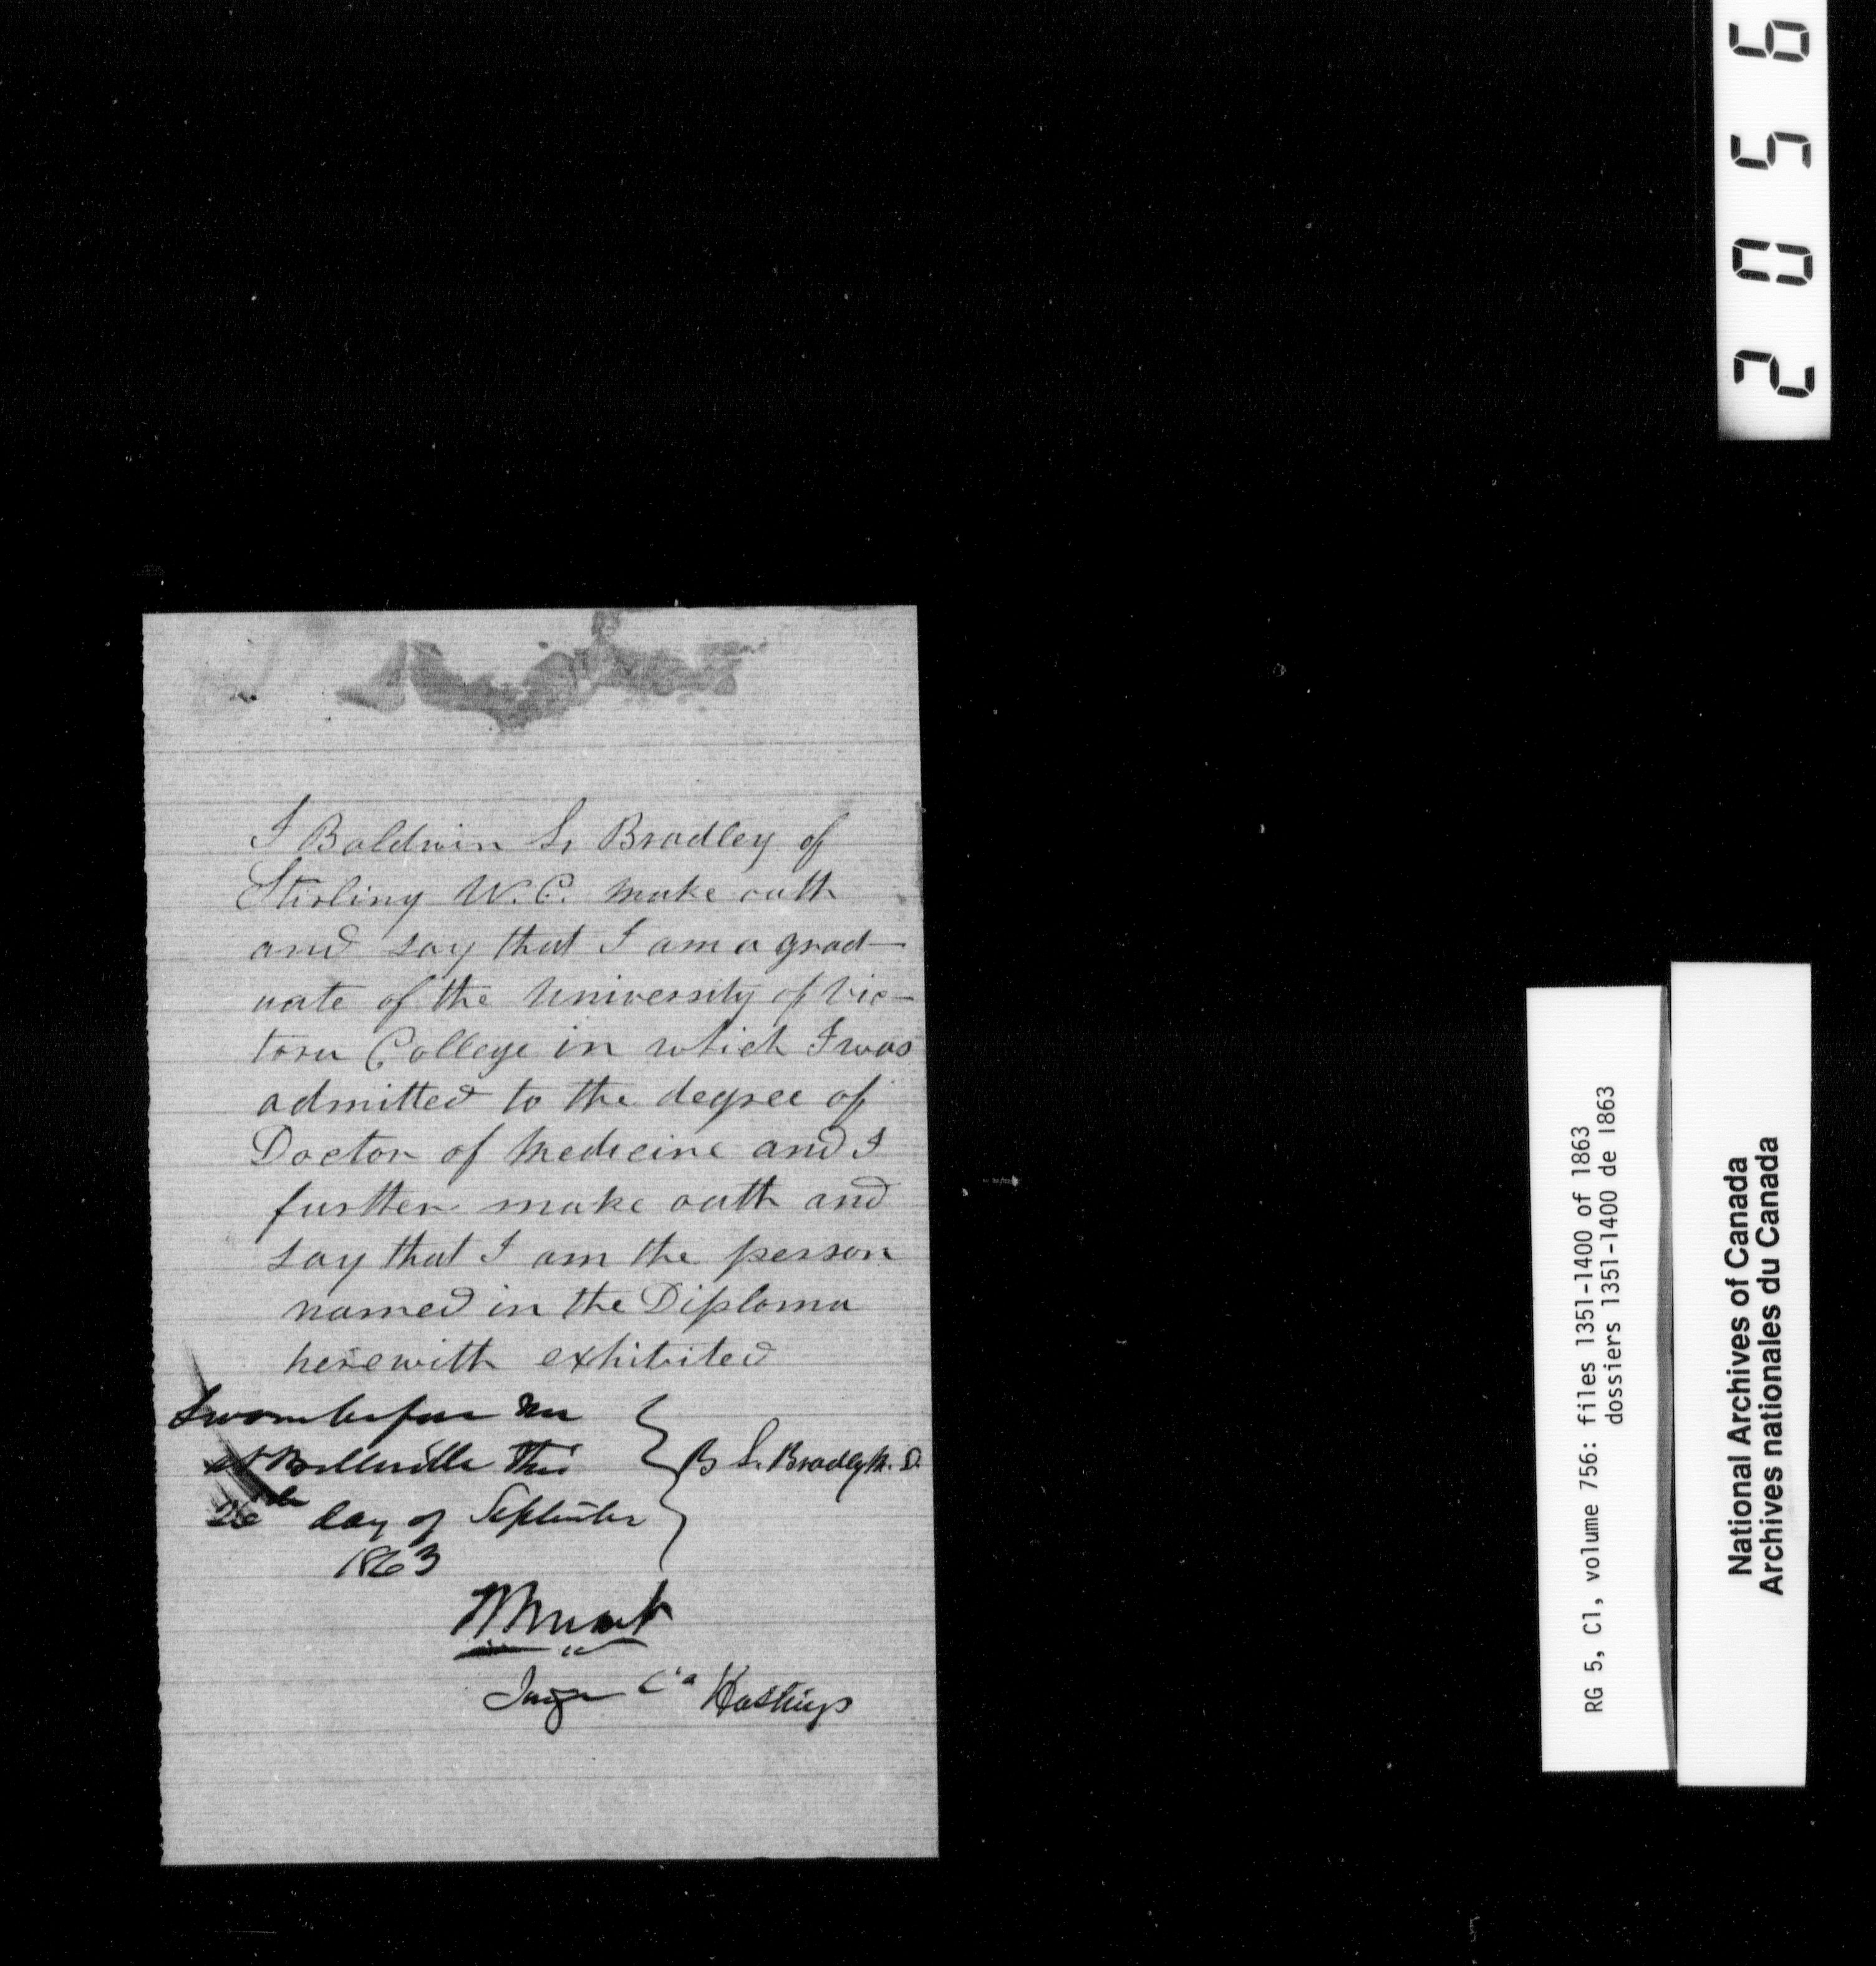 I Baldwin L. Bradley of
Stirling W.C. make oath
and say that I am a grad-
uate of the University of Vic-
toria College in which I was
admitted to the degree of
Doctor of Medicine and I
further make oath and
say that I am the person
named in the Diploma
herewith exhibited
Sworn before me
at Belleville this
26th day of September
1863
B L. Bradley M.D.
Judge Co Hastings
2056
RG 5, C1, volume 756: files 1351-1400 of 1863
dossiers 1351-1400 de 1863
National Archives of Canada
Archives nationales du Canada